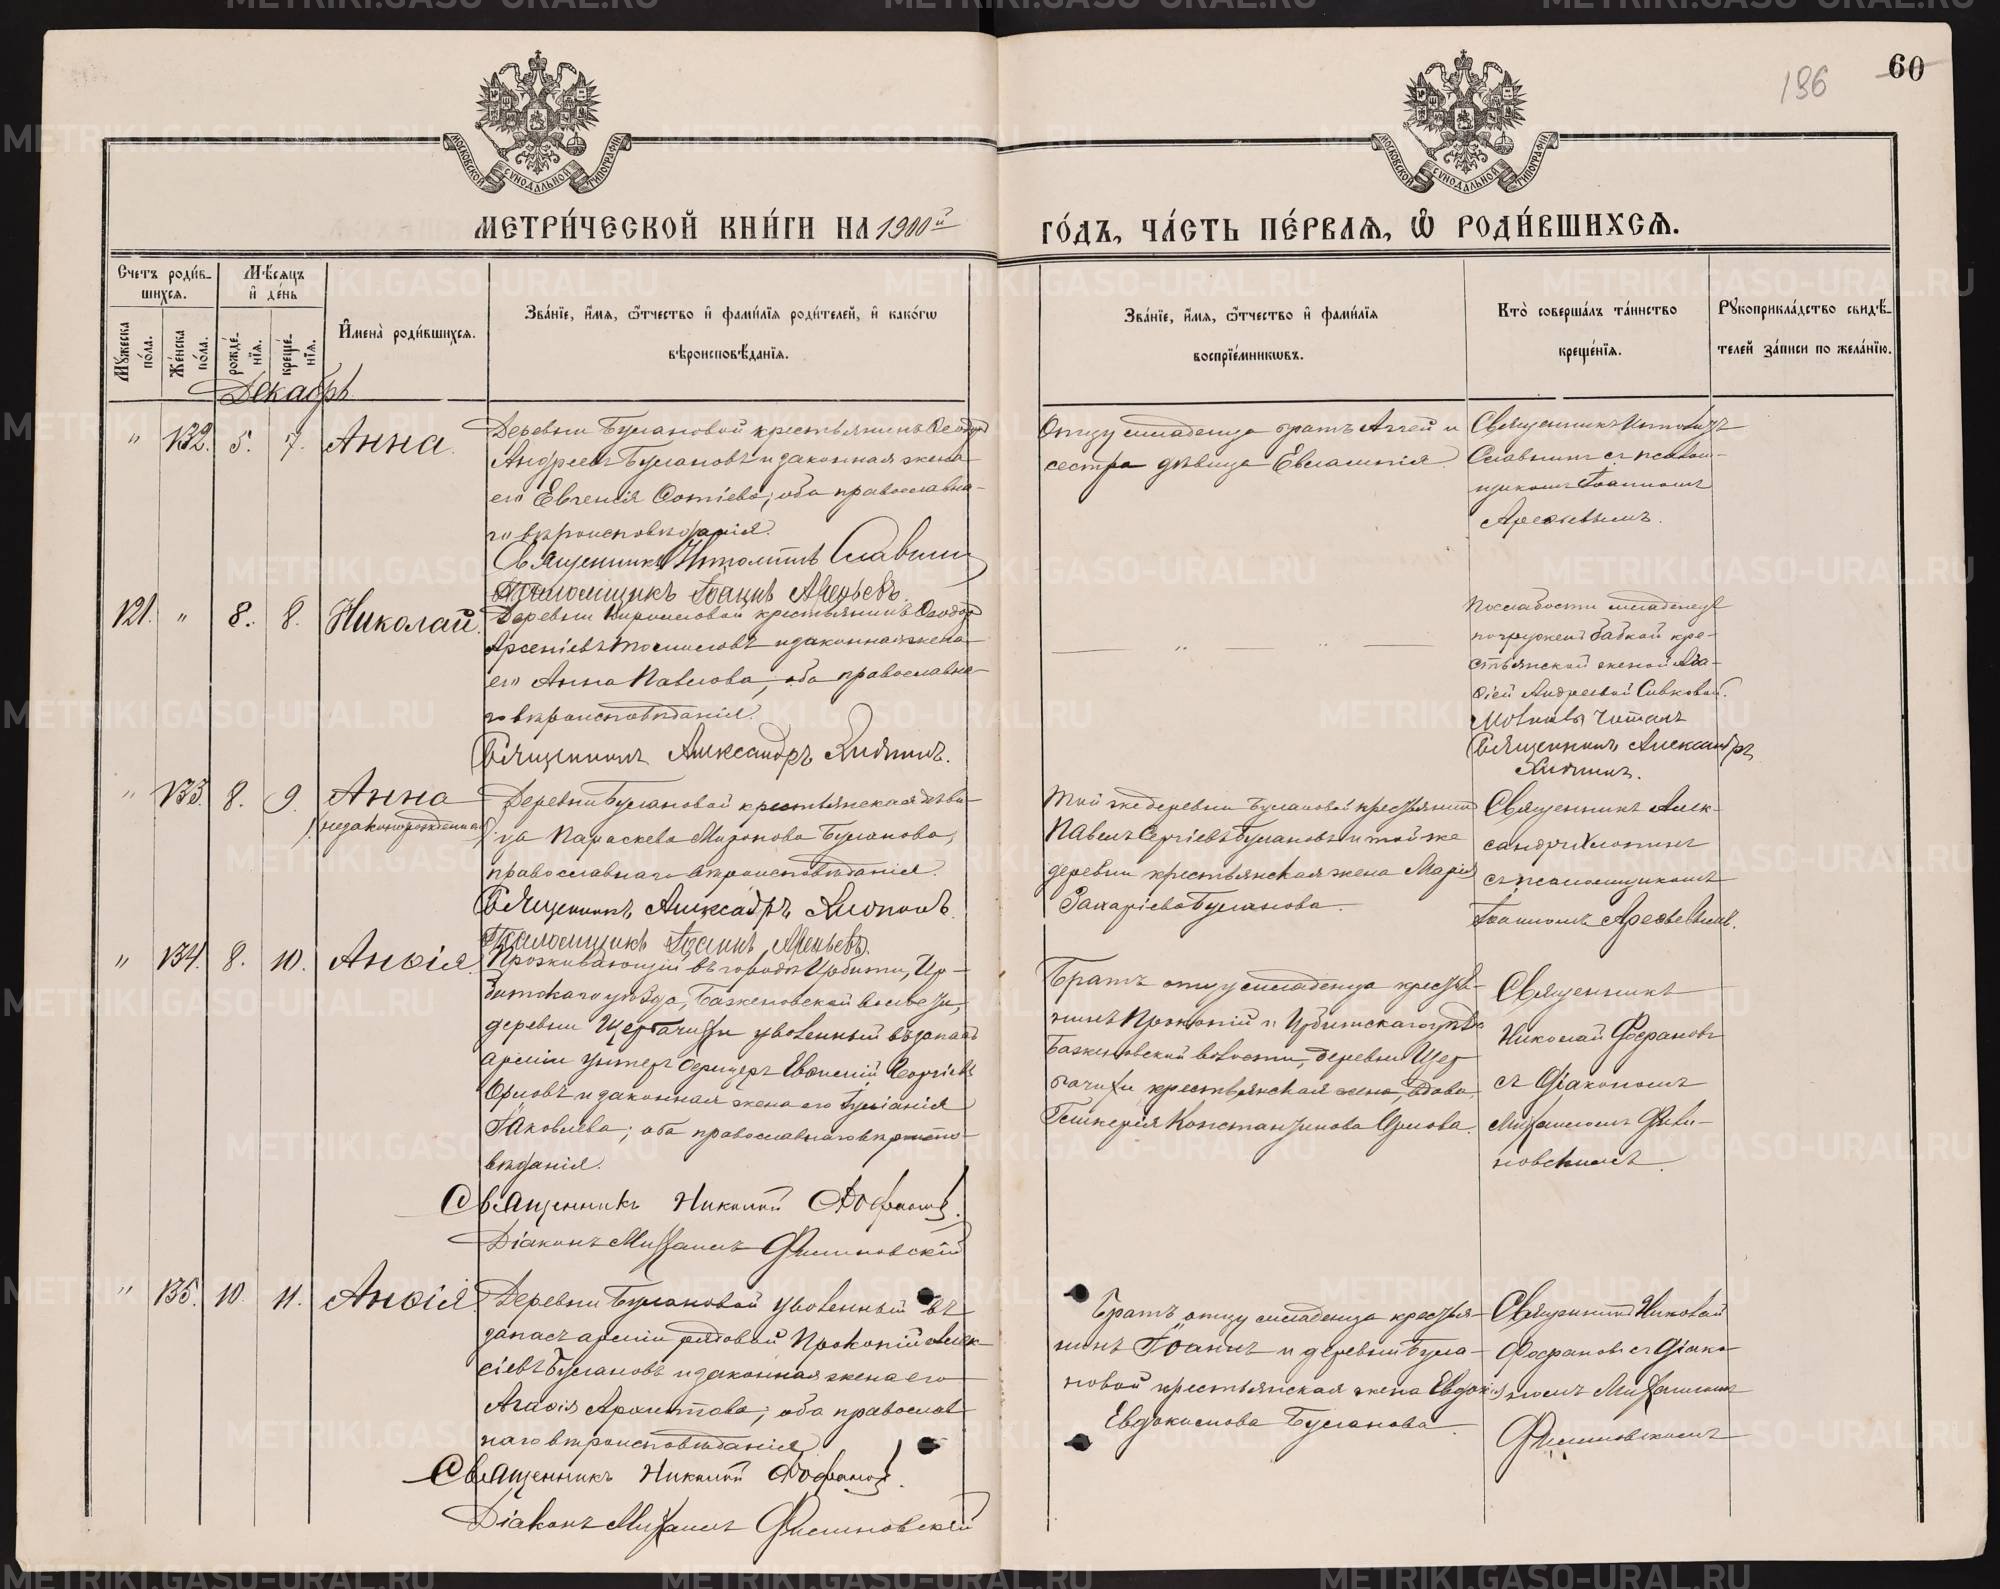 196
60
МОСКОВСКОЙ СѴНОДАЛЬНОЙ ТИПОГРАФІИ
МОСКОВСКОЙ СѴНОДАЛЬНОЙ ТИПОГРАФІИ
МЕТРИ́ЧЕСКОЙ КНИ́ГИ НА 1900й
ГО́ДЪ, ЧА́СТЬ ПЕ́РВАѦ, Ѡ҆ РОДИ́ВШИХСѦ.
Счетъ роди́в-
шихсѧ.
Мꙋ́жеска по́ла.
Же́нска по́ла.
Мѣ́сѧцъ
и҆ де́нь
рожде́-
нїѧ.
креще́-
нїѧ.
И҆мена̀ роди́вшихсѧ.
Зва́нїе, и҆́мѧ, ѻ҆́тчество и҆ фами́лїѧ роди́телей, и҆ како́гѡ
вѣроисповѣ́данїѧ.
Зва́нїе, и҆́мѧ, ѻ҆́тчество и҆ фами́лїѧ
воспрїе́мникѡвъ.
Кто̀ соверша́лъ та́инство
креще́нїѧ.
Рꙋкоприкла́дство свидѣ́-
телей за́писи по жела́нїю.
Декабрь
" 132. 5. 7. Анна.
Деревни Булановой крестьянинъ Ѳеодоръ
Андреевъ Булановъ и законная жена
его Евгенія Ѳотіева; оба православна-
го вѣроисповѣданія.
Священникъ Ипполитъ Славнин
Псаломщикъ Іоаннъ Арефьевъ.
Отцу младенца братъ и
сестра дѣвица Евлампія.
Священникъ Ипполитъ
Славнинъ съ псалом-
щикомъ Іоанномъ
Арефьевымъ.
121. " 8. 8. Николай.
Деревни крестьянинъ Ѳеодоръ
Арсеніевъ и законная жена
его Анна Павлова; оба православна-
го вѣроисповѣданія.
Священникъ Александръ Хлопинъ.
— " — " —
По слабости младенецъ
погруженъ бабкой кре-
стьянской женой Ага-
ѳіей Андреевой Сивковой.
Молитвы читалъ
Священникъ Александръ
Хлопинъ.
" 133. 8. 9. Анна
(незаконорожденная)
Деревни Булановой крестьянская дѣви-
ца Параскева Миронова Буланова,
православнаго вѣроисповѣданія.
Священникъ Александръ Хлопинъ.
Псаломщикъ Іоаннъ Арефьевъ.
Той же деревни Булановой крестьянинъ
Павелъ Сергіевъ Булановъ и той же
деревни крестьянская жена Марія
Захаріева Буланова.
Священникъ Алек-
сандръ Хлопинъ
съ псаломщикомъ
Іоанномъ Арефьевымъ.
" 134. 8. 10. Анѳія.
Проживающій въ городѣ Ирбити, Ир-
битскаго уѣзда, Баженовской волости,
деревни Щергачихи уволенный въ запасъ
арміи унтеръ офицеръ Евѳимій Сергіевъ
Орловъ и законная жена его Іуліанія
Іаковлева; оба православнаго вѣроиспо-
вѣданія.
Священникъ Николай Ѳофановъ.
Діаконъ Михаилъ Филиновскій
Братъ отцу младенца крестья-
нинъ Прокопій и Ирбитскаго уѣзда
Баженовской волости, деревни Щер-
гачихи крестьянская жена, вдова,
Гликерія Константинова Орлова.
Священникъ
Николай Ѳофановъ
съ діакономъ
Михаиломъ Фили-
новскимъ.
" 135. 10. 11. Анѳія.
Деревни Булановой уволенный въ
запасъ арміи рядовой Прокопій Алек-
сіевъ Булановъ и законная жена его
Агаѳія Архиппова; оба православ
наго вѣроисповѣданія.
Священникъ Николай Ѳофановъ.
Діаконъ Михаилъ Филиновскій
Братъ отцу младенца крестья-
нинъ Іоаннъ и деревни Була-
новой крестьянская жена Евдокія
Евдокимова Буланова.
Священникъ Николай
Ѳофановъ съ діако-
номъ Михаиломъ
Филиновскимъ
METRIKI.GASO-URAL.RU